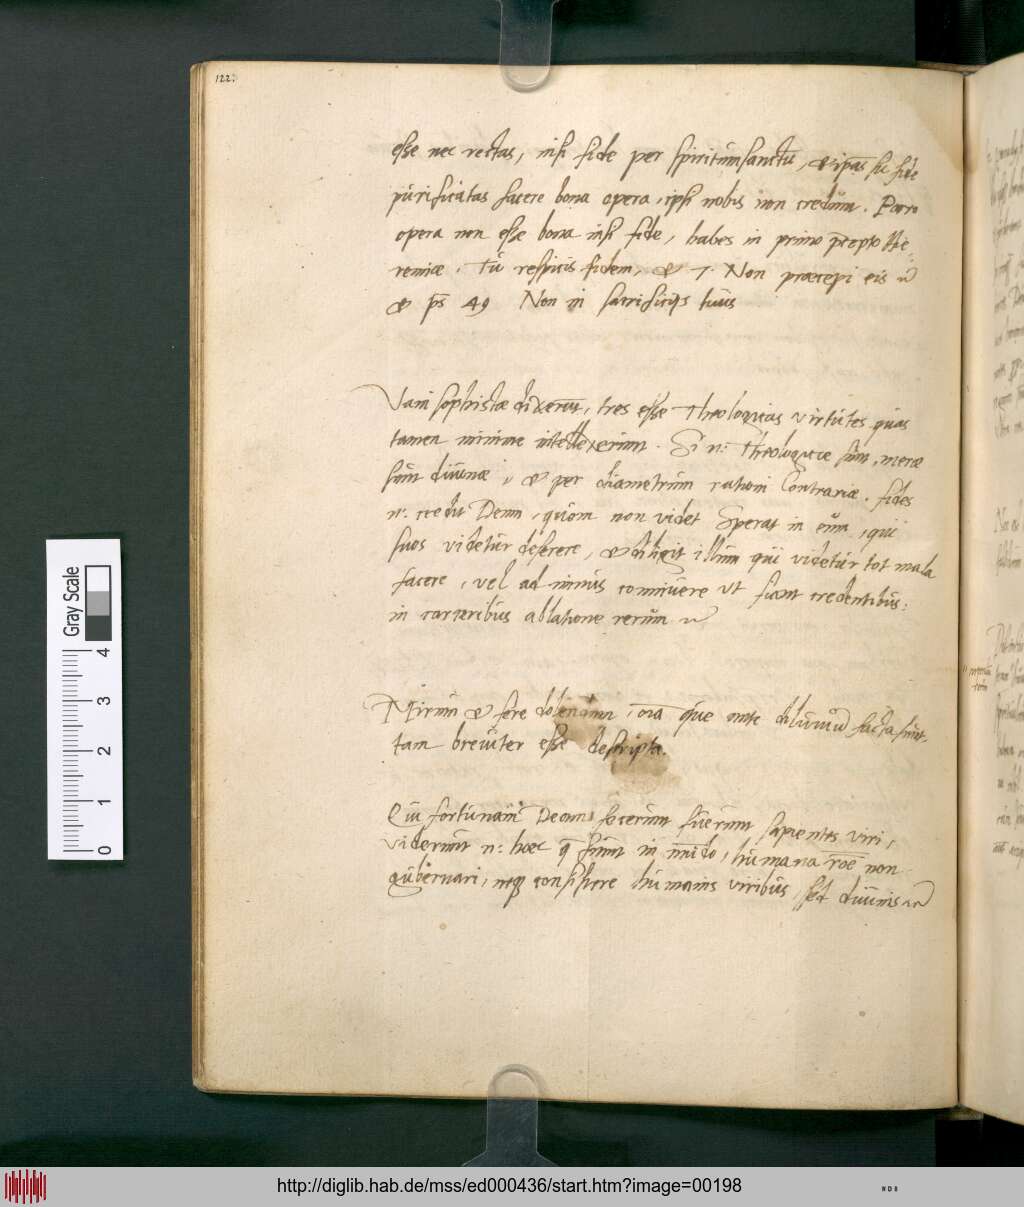 122
esse nec rectas, nisi fide per spiritumsanctū, et ipās sic fide
purificatas facere bona opera, ipsi nobis non credūnt. Porro
opera non esse bona nisi fide, habes in primo p̄cepto Hie-
remiae, Tū respicis fidem, et 7. Non praecepi eis
et ps 49 Non in sacrificijs tuis
Vani sophistae dixerūnt, tres esse Theologicas virtutes quas
tamen minime intellexerunt. Si n: Theologicae sūnt, merae
sūnt diuinae, et per diametrum rationi Contrariae. fides
n: credit Deum, quom non videt Sperat in eūm, qui
suos videtur deserere, et diligit illum qui videtur tot mala
facere, vel ad minus connivere vt fiant credentibus:
in carceribus ablatione rerum
Mirum et fere dolendum, oīa que ante diluuiū facta sunt
tam breuiter esse descripta.
Qui fortunam Deam fecerunt fuerunt sapientes viri,
viderunt n: haec q̄ fiunt in mūndo, humana rōe non
gubernari, neq consistere humanis viribus, sed diuinis
Gray Scale
4
3
2
1
0
http://diglib.hab.de/mss/ed000436/start.htm?image=00198